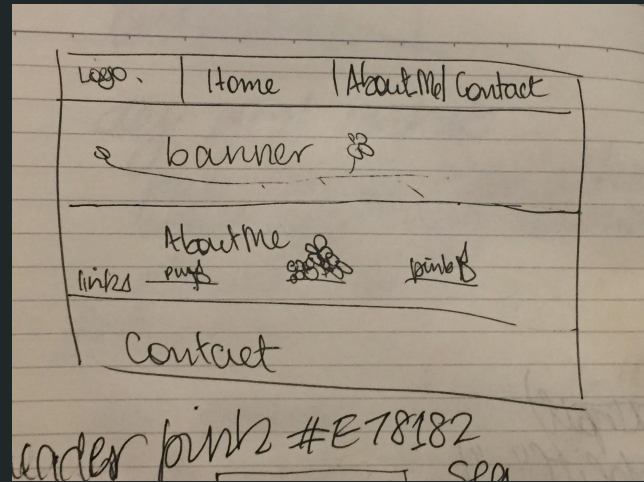 Logo. Home About Me Contact
banner
About Me
links
Contact
pink #E78182